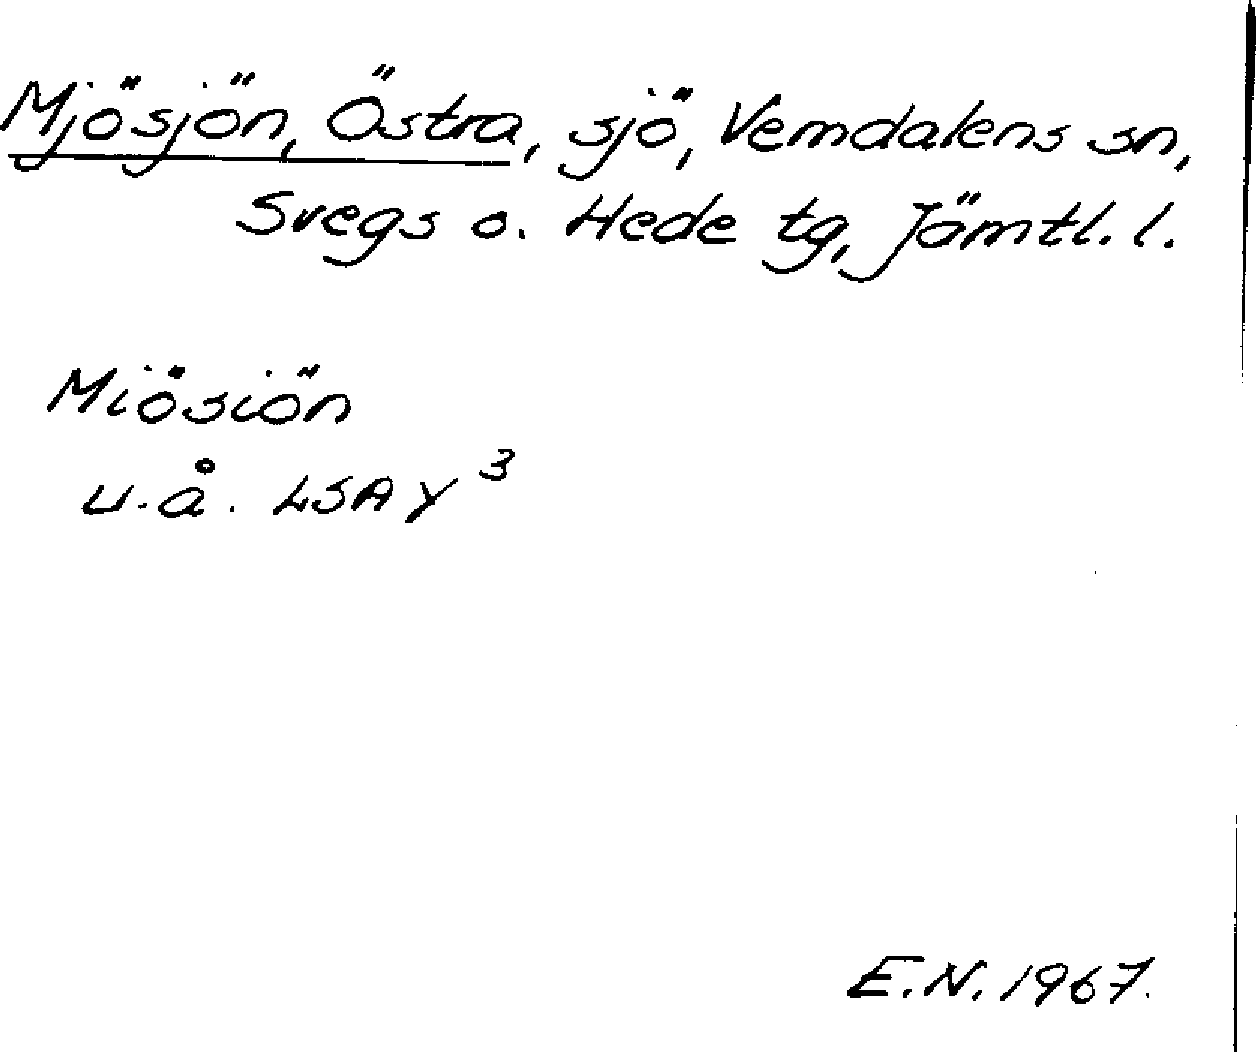 Mjösjön, Östra, sjö, Vemdalens sn,
Svegs o. Hede tg, Jämtl. l.
Miösiön
u.å. LSA Y³
E.N. 1967.